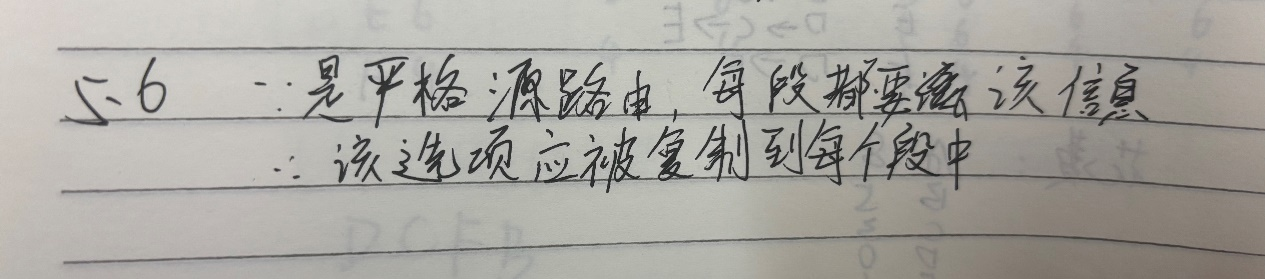 5.6 ∵是严格源路由,每段都要该信息
∴该选项应被复制到每个段中